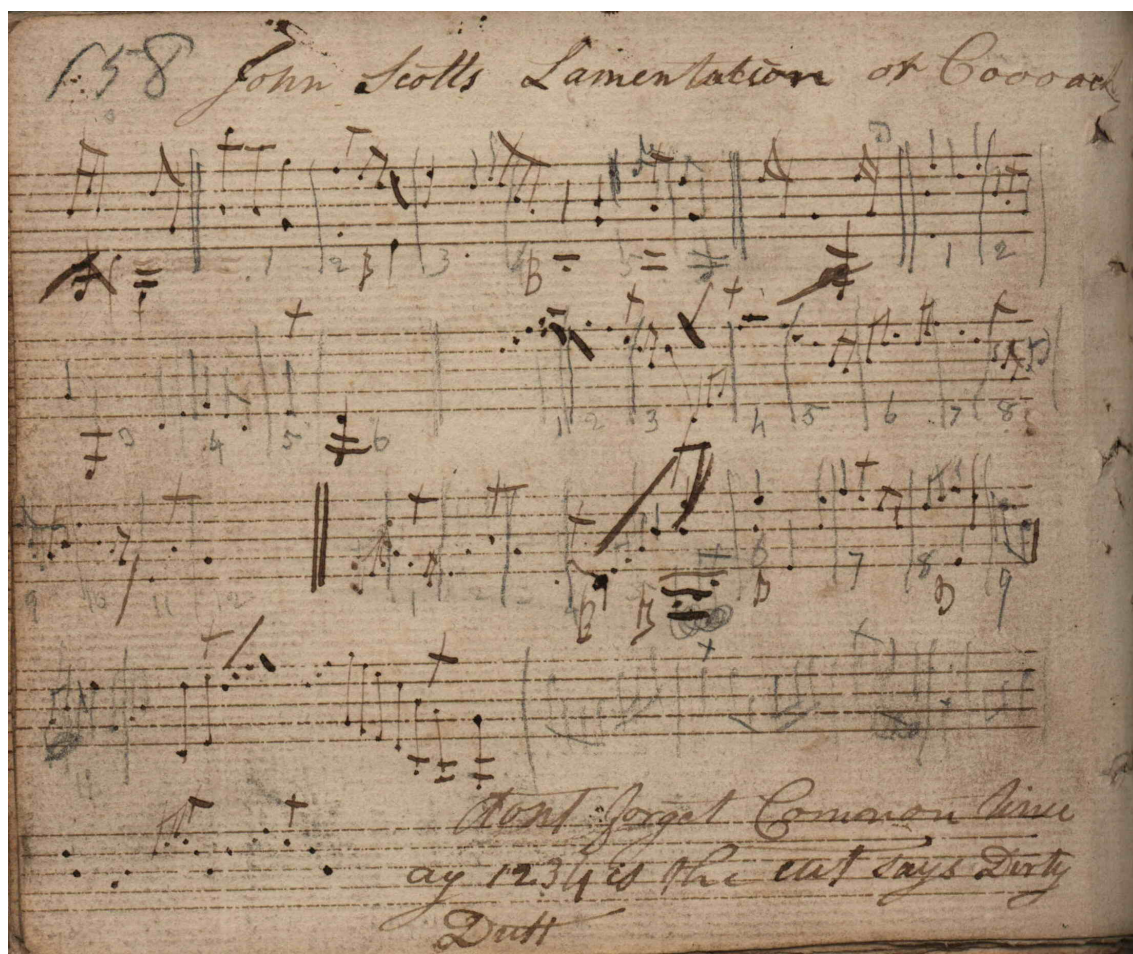 158 John Scotts Lamentation or
1 2 B 3 B 5 1 2
3 4 5 6 1 2 3 4 5 6 7 8
9 10 11 12 1 2 B B 6 B 7 8 B 9
dont forget Common time
ay 1234 is the cut says Dirty
Dutt